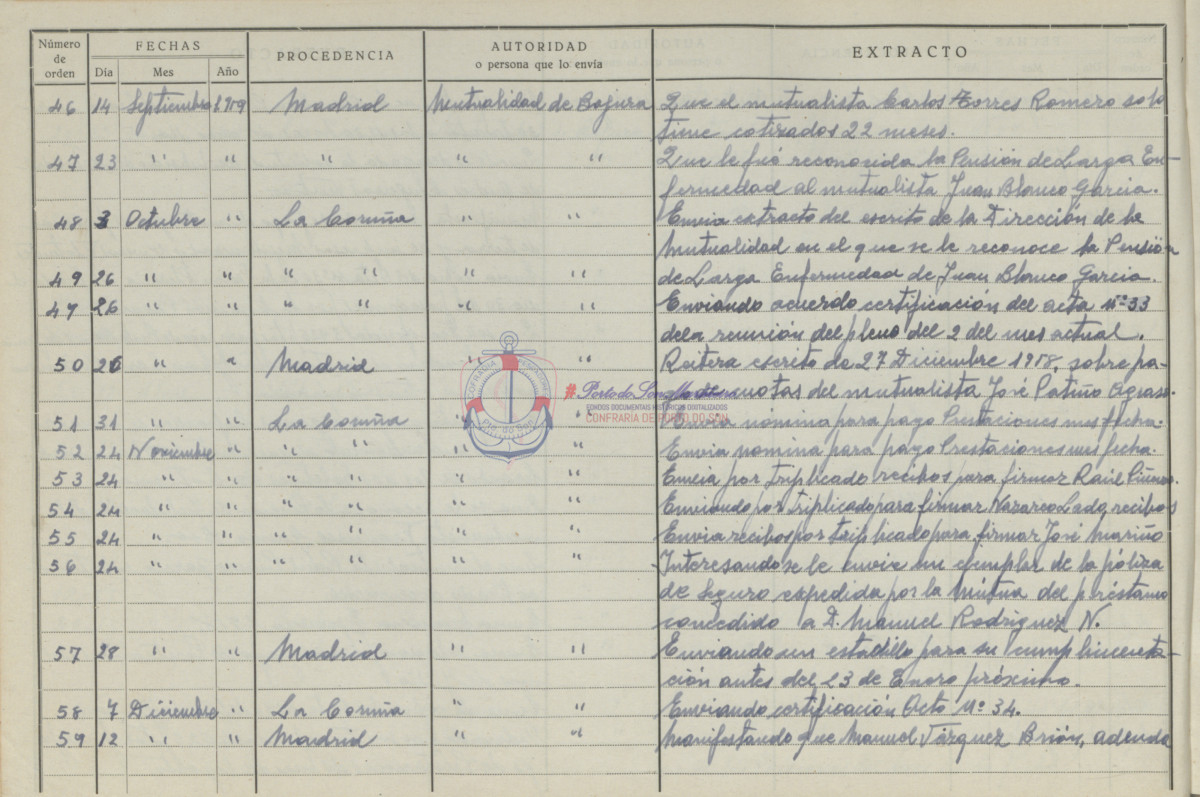 Número de orden FECHAS PROCEDENCIA AUTORIDAD o persona que lo envía EXTRACTO
Día Mes Año
46 14 Septiembre 1.959 Madrid Mutualidad de Bajura Que el mutualista Carlos Torres Romero solo
tiene cotizados 22 meses.
47 23 " " " " " Que le fué reconocida la Pensión de Larga En-
fermedad al mutualista Juan Blanco Garcia.
48 3 Octubre " La Coruña " " Envia extracto del escrito de la Dirección de la
Mutualidad en el que se le reconoce la Pensión
49 26 " " " " " " de Larga Enfermedad de Juan Blanco Garcia.
47 26 " " " " " " Enviando acuerdo certificación del acta Nº 33
dela reunión del pleno del 2 del mes actual.
50 26 " " Madrid " " Reitera escrito de 27 Diciembre 1958, sobre pa-
cuotas del mutualista José Patiño
51 31 " " La Coruña " " Envia nomina para pago Prestaciones mes fecha.
52 24 Noviembre " " " " " Envia nomina para pago Prestaciones mes fecha.
53 24 " " " " " " Envia por triplicado recibos para firmar Raúl
54 24 " " " " " " Enviando por triplicado para firmar Nazareo Lado, recibos
55 24 " " " " " " Envia recibos por triplicado para firmar José Mariño
56 24 " " " " " " Interesando se le envie un ejemplar de la póliza
de Seguro expedida por la Mútua del préstamo
concedido a D. Manuel Rodriguez N.
57 28 " " Madrid " " Enviando un estadillo para su cumplimenta-
ción antes del 23 de Enero próximo.
58 7 Diciembre " La Coruña " " Enviando certificación Acto Nº 34.
59 12 " " Madrid " " Manifestando que Manuel Vázquez Brión, adeuda
COFRADIA DE PESCADORES
Pto. do Son
#PortodoSonMemoria
FONDOS DOCUMENTAIS HISTÓRICOS DIGITALIZADOS
CONFRARÍA DE PORTO DO SON